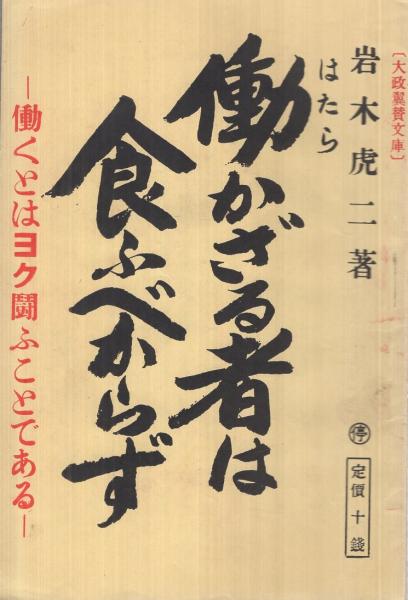 〔大政翼賛文庫〕
岩木虎二著
はたら
働かざる者は
食ふべからず
―働くとはヨク闘ふことである―
停
定價十錢